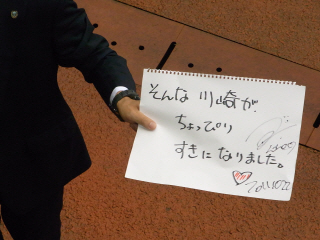 そんな 川崎が
ちょっぴり
すきになりました。